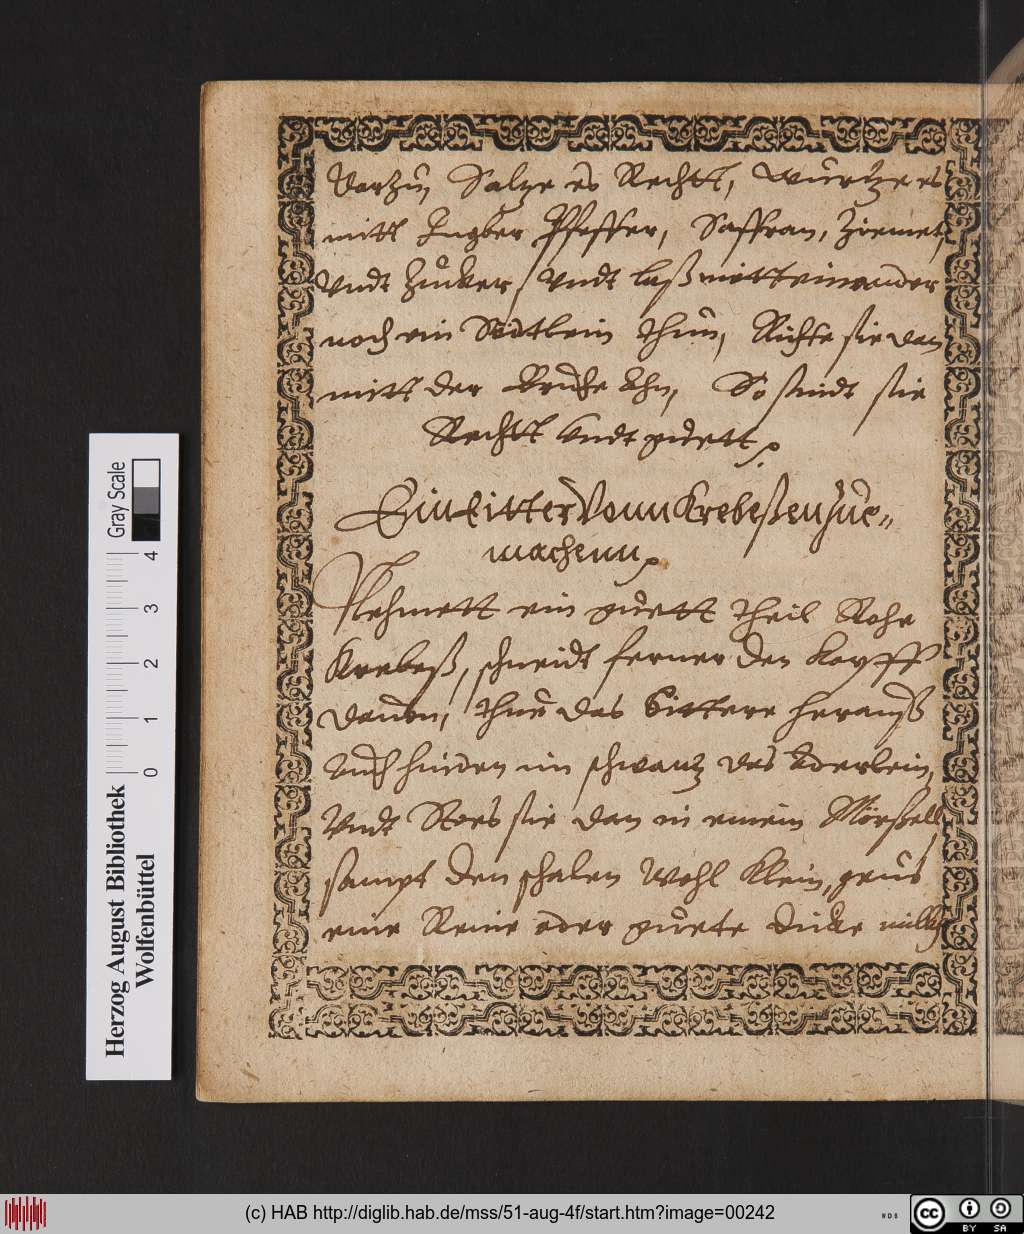 darzu, Saltze es Rechtt, wurtze es
mitt Ingber Pfeffer, Saffran, Ziemet,
Vndt Zucker, Vndt laß mitt einander
noch ein Sodtlein thun, Richte sie dan
mitt der Bruhe ahn, So sindt sie
Rechtt vndt guett.
Ein Eitter Vonn Krebeßen zue
machenn.
Nehmett ein guett theil Rohe
Krebeß, schneidt ferner den Kopff
dauon, thue das bittere herauß
Auch hinden im schwantz das Aderlein,
Vndt Stoes sie dan in einem Mörßell
sampt den schalen Wohl Klein, geus
eine Reine oder guete dicke millch
Herzog August Bibliothek
Wolfenbüttel
Gray Scale
0 1 2 3 4
(c) HAB http://diglib.hab.de/mss/51-aug-4f/start.htm?image=00242
WDB
cc BY SA